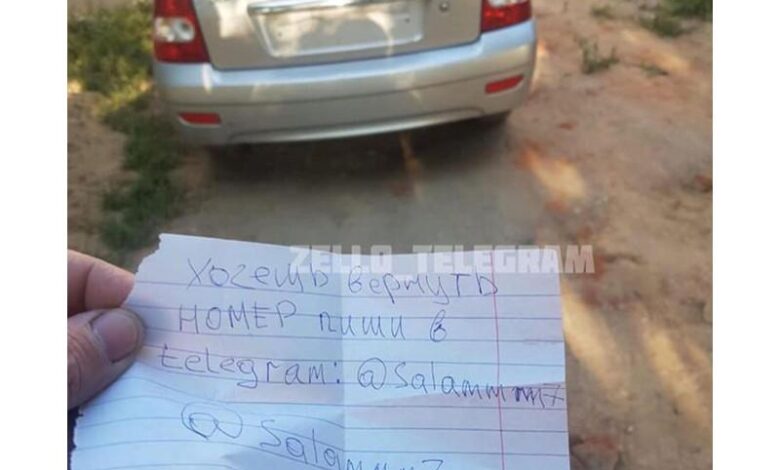 ZELLO_TELEGRAM
хочешь вернуть
НОМЕР пиши в
telegram: @Salammm7
@ Salammm7